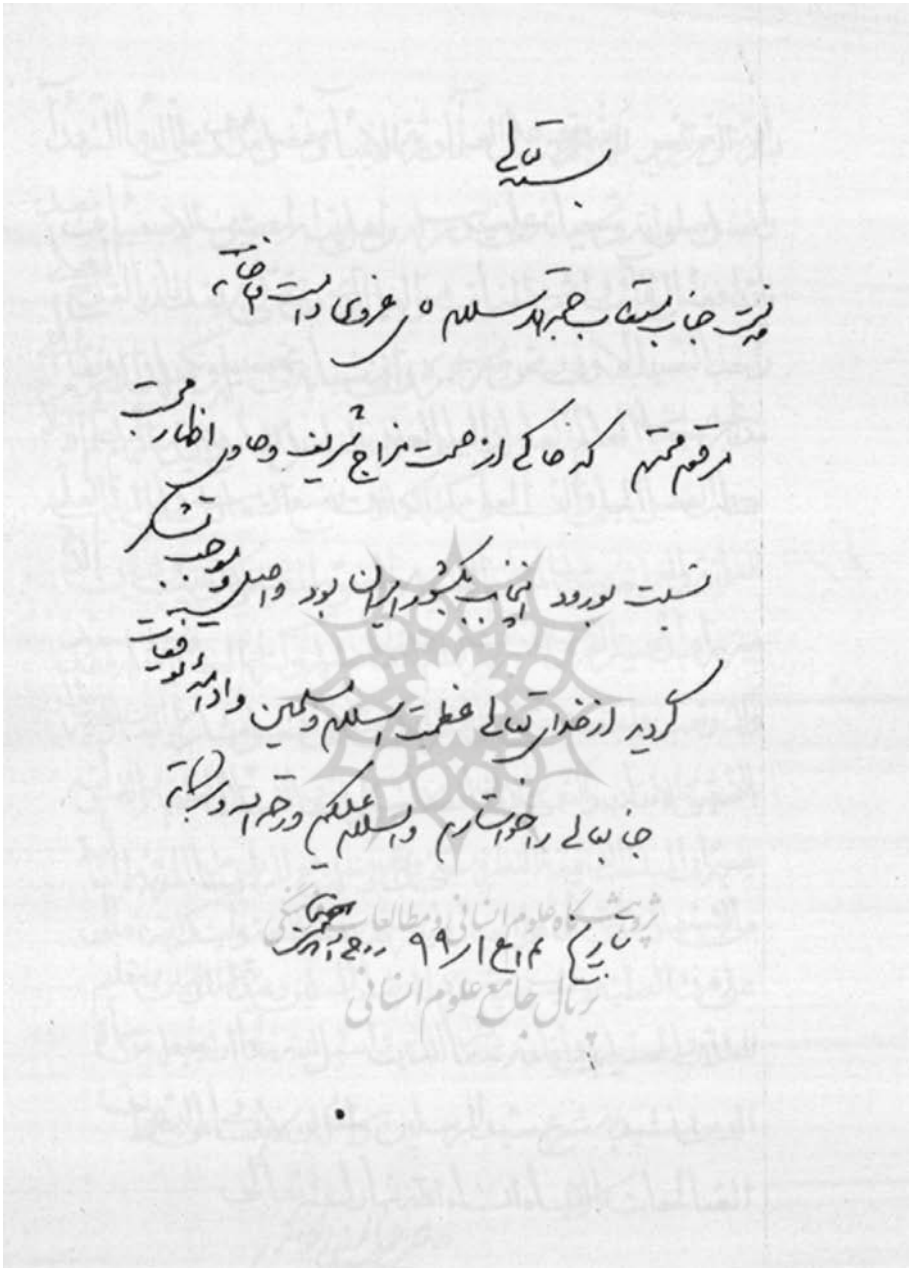 بسمه تعالی
خدمت جناب مستطاب حجة الاسلام آقای غروی دامت افاضاته
مرقوم محترم که حاکی از صحت مزاج شریف و حاوی اظهار محبت
نسبت بورود اینجانب بکشور ایران بود واصل و موجب تشکر
گردید از خدای تعالی عظمت اسلام و مسلمین و ادامهٔ توفیقات
جنابعالی را خواستارم والسلام علیکم ورحمة الله وبرکاته
بتاریخ ۲۰ ج ۱ ر ۹۹
پژوهشگاه علوم انسانی و مطالعات فرهنگی
پرتال جامع علوم انسانی